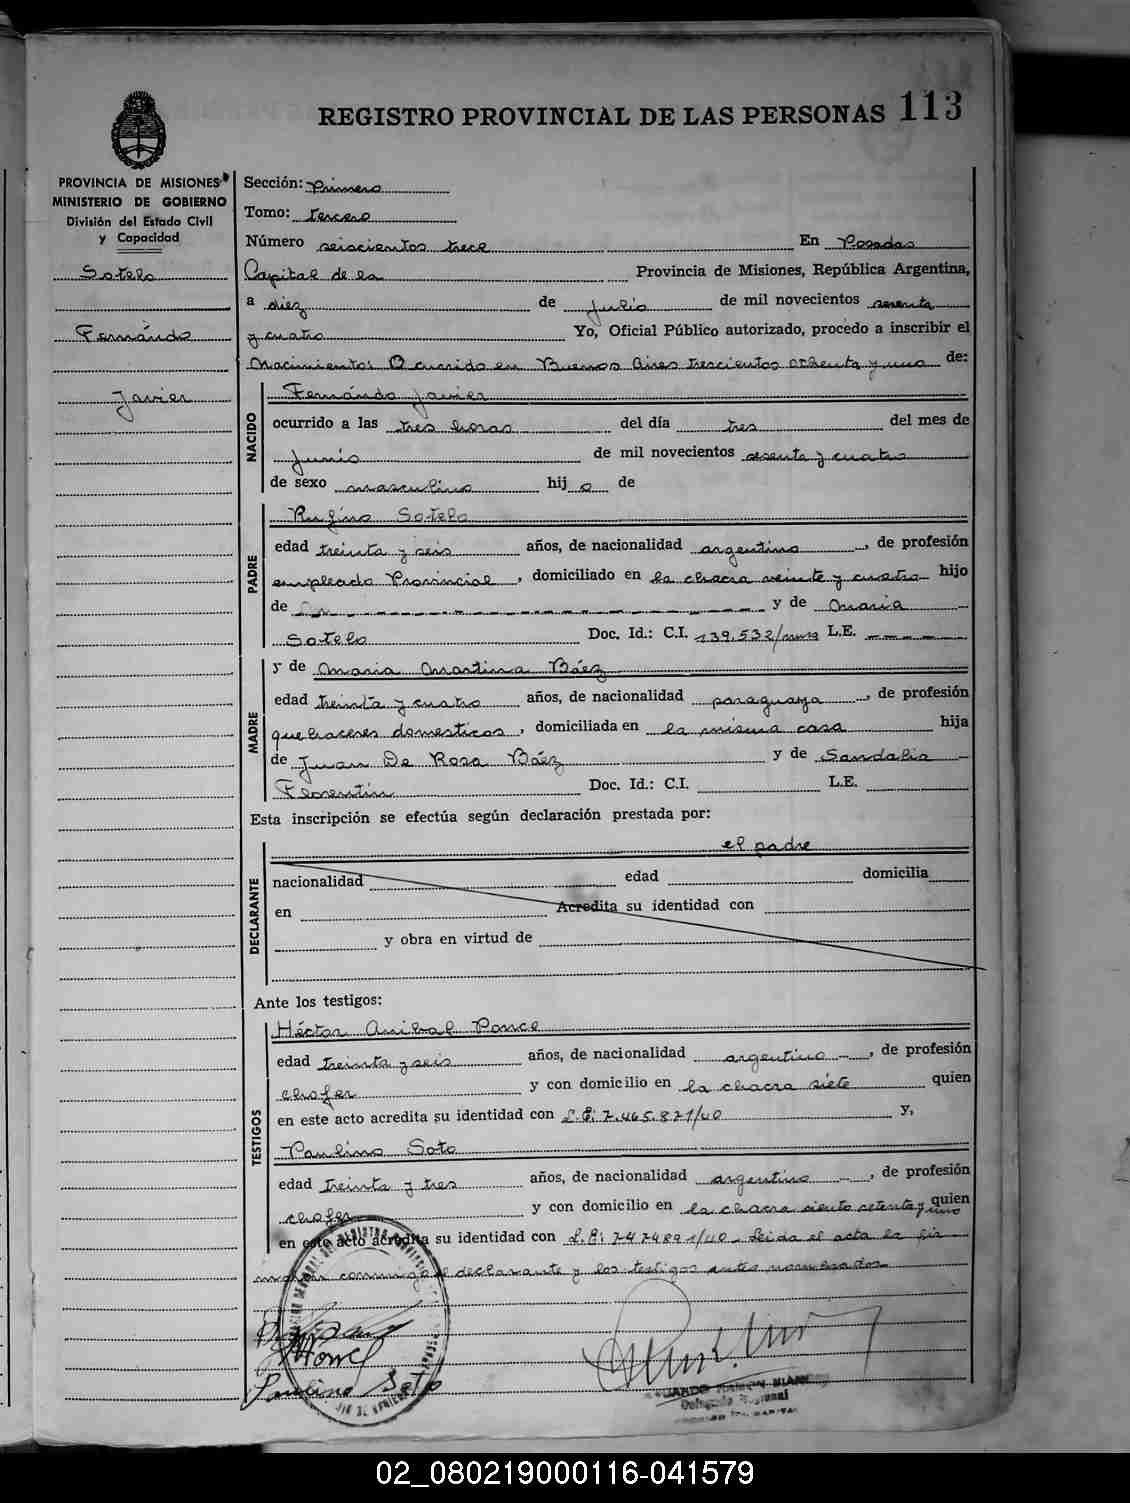 REGISTRO PROVINCIAL DE LAS PERSONAS 113
PROVINCIA DE MISIONES
MINISTERIO DE GOBIERNO
División del Estado Civil
y Capacidad
Sotelo
Fernándo
Javier
Sección: Primero
Tomo: tercero
Número seiscientos trece En Posadas
Capital de la Provincia de Misiones, República Argentina,
a diez de julio de mil novecientos sesenta
y cuatro Yo, Oficial Público autorizado, procedo a inscribir el
Nacimiento: Ocurrido en Buenos Aires trescientos ochenta y uno de:
NACIDO
Fernándo Javier
ocurrido a las tres horas del día tres del mes de
Junio de mil novecientos sesenta y cuatro
de sexo masculino hij o de
PADRE
Rufino Sotelo
edad treinta y seis años, de nacionalidad argentino, de profesión
empleado Provincial, domiciliado en la chacra veinte y cuatro hijo
de y de Maria
Sotelo Doc. Id.: C.I. 139.532/ L.E.
MADRE
y de Maria Martina Báez
edad treinta y cuatro años, de nacionalidad paraguaya, de profesión
quehaceres domesticos, domiciliada en la misma casa hija
de Juan De Rosa Báez y de Sandalia
Florentin Doc. Id.: C.I. L.E.
Esta inscripción se efectúa según declaración prestada por:
DECLARANTE
el padre
nacionalidad edad domicilia
en Acredita su identidad con
y obra en virtud de
Ante los testigos:
TESTIGOS
Héctor Anibal Ponce
edad treinta y seis años, de nacionalidad argentino, de profesión
chofer y con domicilio en la chacra siete quien
en este acto acredita su identidad con L.E: 7.465.871/40 y,
Paulino Soto
edad treinta y tres años, de nacionalidad argentino, de profesión
chofer y con domicilio en la chacra ciento setenta y uno quien
en este acto acredita su identidad con L.E: Leida el acta la fir
man conmigo el declarante y los testigos antes nombrados
Paulino Soto
02_080219000116-041579